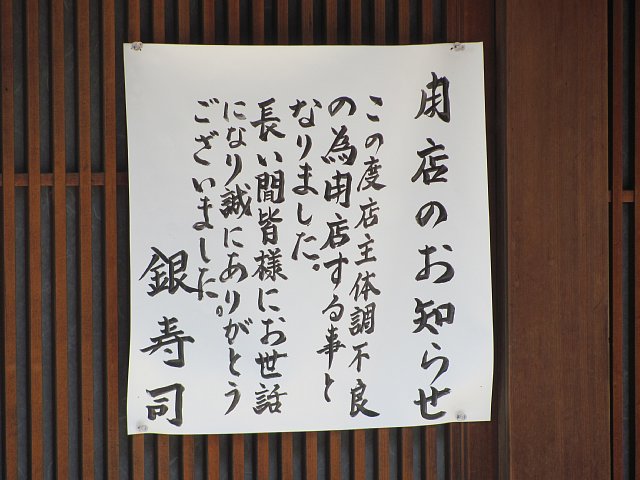 閉店のお知らせ
この度店主体調不良
の為閉店する事と
なりました。
長い間皆様にお世話
になり誠にありがとう
ございました。
銀寿司